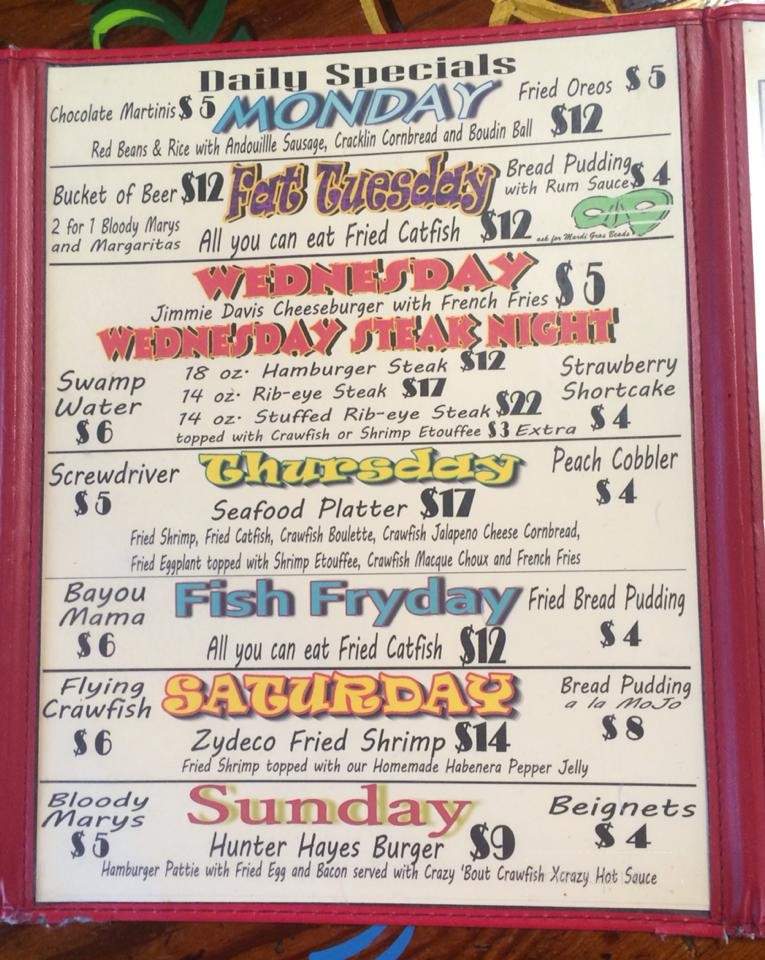 Daily Specials
Chocolate Martinis $5 MONDAY Fried Oreos $5
Red Beans & Rice with Andouillle Sausage, Cracklin Cornbread and Boudin Ball $12
Bucket of Beer $12 Fat Tuesday Bread Pudding with Rum Sauce $4
2 for 1 Bloody Marys
and Margaritas
All you can eat Fried Catfish $12
ask for Mardi Gras Beads
WEDNESDAY
Jimmie Davis Cheeseburger with French Fries $5
WEDNESDAY STEAK NIGHT
Swamp
Water
$6
18 oz. Hamburger Steak $12
14 oz. Rib-eye Steak $17
14 oz. Stuffed Rib-eye Steak $22
topped with Crawfish or Shrimp Etouffee $3 Extra
Strawberry
Shortcake
$4
Screwdriver
$5
Thursday
Peach Cobbler
$4
Seafood Platter $17
Fried Shrimp, Fried Catfish, Crawfish Boulette, Crawfish Jalapeno Cheese Cornbread,
Fried Eggplant topped with Shrimp Etouffee, Crawfish Macque Choux and French Fries
Bayou
Mama
$6
Fish Fryday
Fried Bread Pudding
$4
All you can eat Fried Catfish $12
Flying
Crawfish
$6
SATURDAY
Bread Pudding
a la MoJo
$8
Zydeco Fried Shrimp $14
Fried Shrimp topped with our Homemade Habenera Pepper Jelly
Bloody
Marys
$5
Sunday
Beignets
$4
Hunter Hayes Burger $9
Hamburger Pattie with Fried Egg and Bacon served with Crazy 'Bout Crawfish Xcrazy Hot Sauce